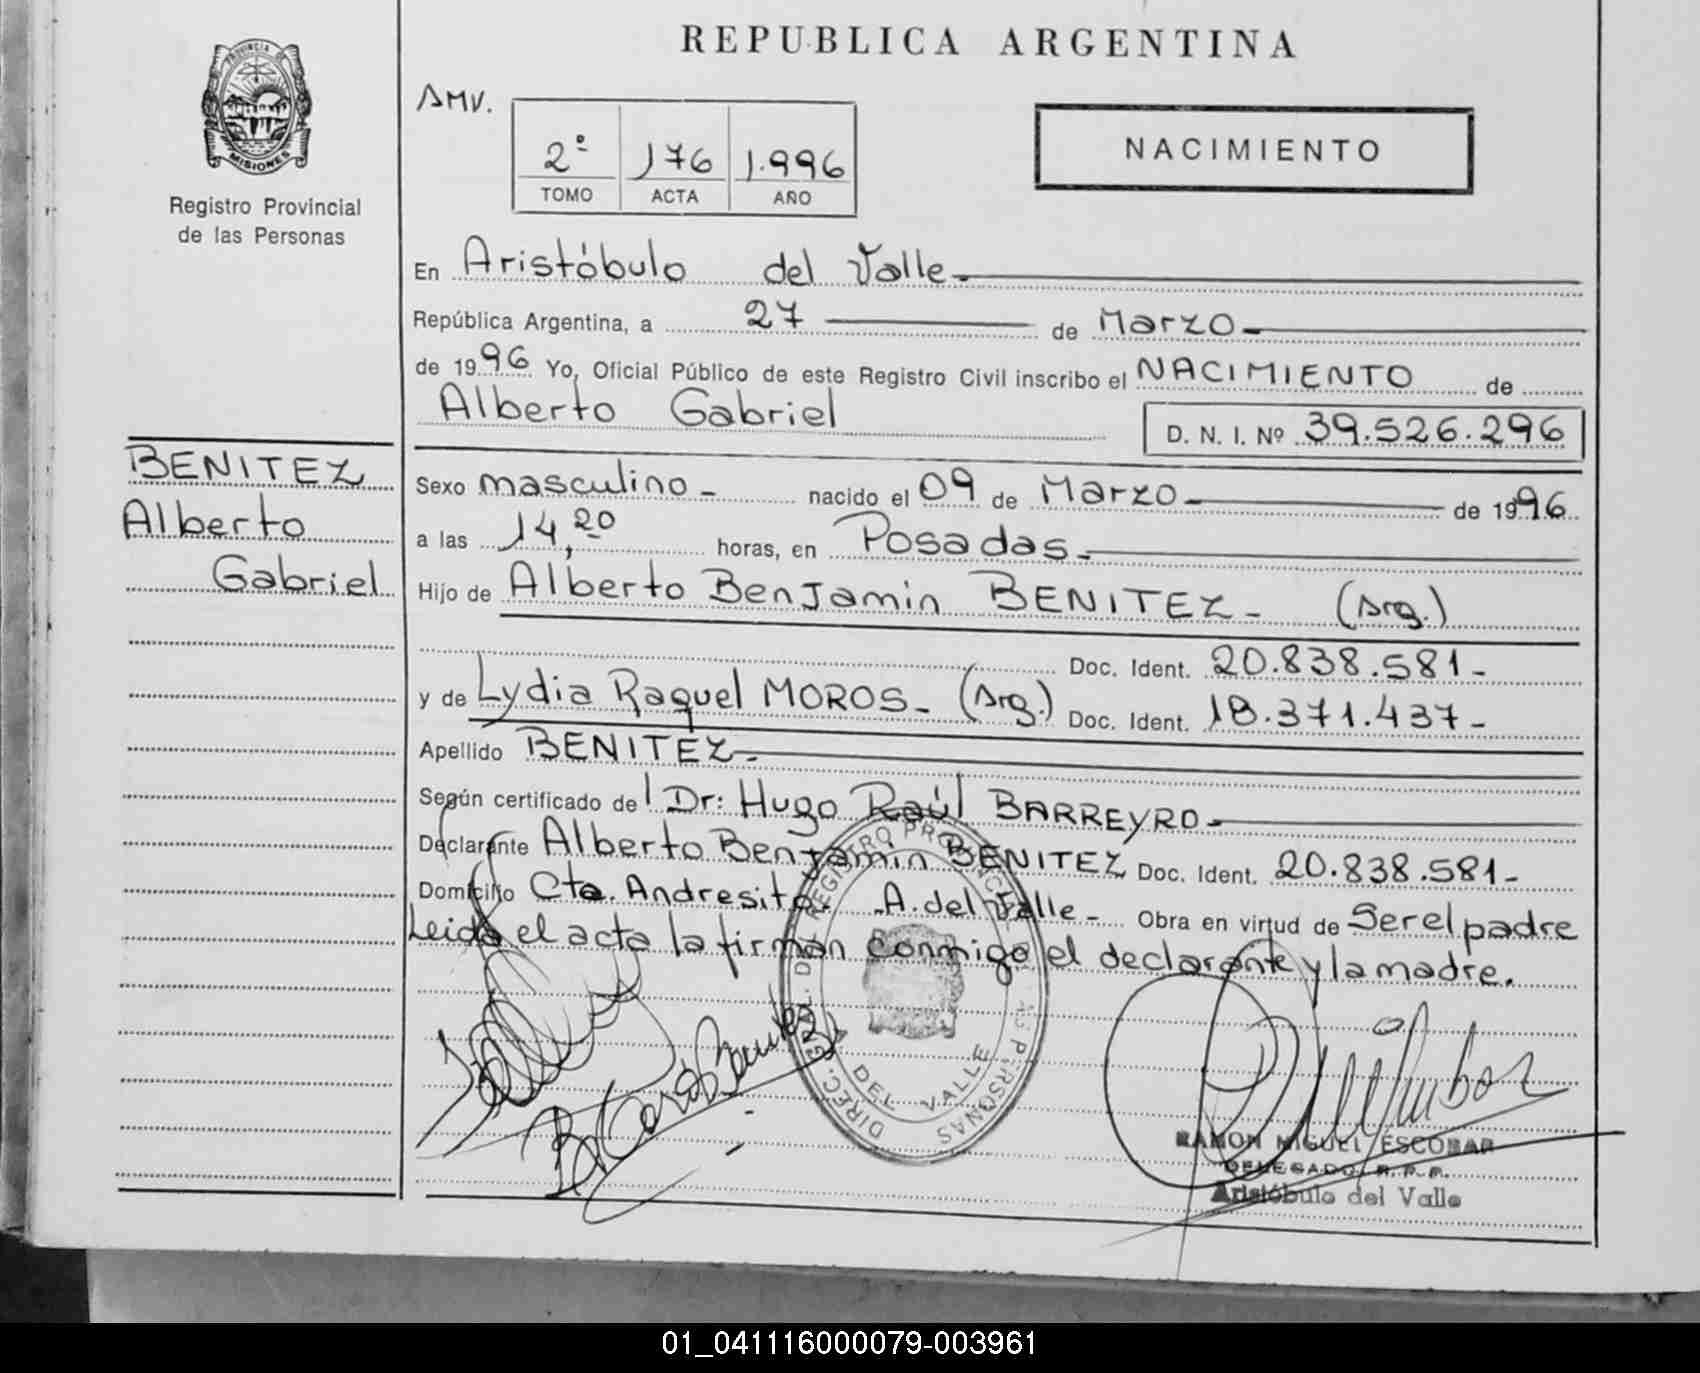 REPUBLICA ARGENTINA
PROVINCIA DE
MISIONES
Registro Provincial
de las Personas
AMV.
2º 176 1.996
TOMO ACTA AÑO
NACIMIENTO
En Aristóbulo del Valle-
República Argentina, a 27 de Marzo-
de 1996 Yo, Oficial Público de este Registro Civil inscribo el NACIMIENTO de
Alberto Gabriel
D. N. I. Nº 39.526.296
BENITEZ
Alberto
Gabriel
Sexo masculino- nacido el 09 de Marzo- de 1996
a las 14,20 horas, en Posadas-
Hijo de Alberto Benjamin BENITEZ- (Arg.)
Doc. Ident. 20.838.581-
y de Lydia Raquel MOROS- (Arg.) Doc. Ident. 18.371.437-
Apellido BENITEZ-
Según certificado de Dr: Hugo Raúl BARREYRO-
Declarante Alberto Benjamin BENITEZ Doc. Ident. 20.838.581-
Domicilio Cte. Andresito. A. del Valle- Obra en virtud de Ser el padre
Leida el acta la firman conmigo el declarante y la madre.
DIREC. GRAL. DEL REGISTRO PROVINCIAL PERSONAS
DEL VALLE
RAMON MIGUEL ESCOBAR
DELEGADO R.P.P.
Aristóbulo del Valle
01_041116000079-003961